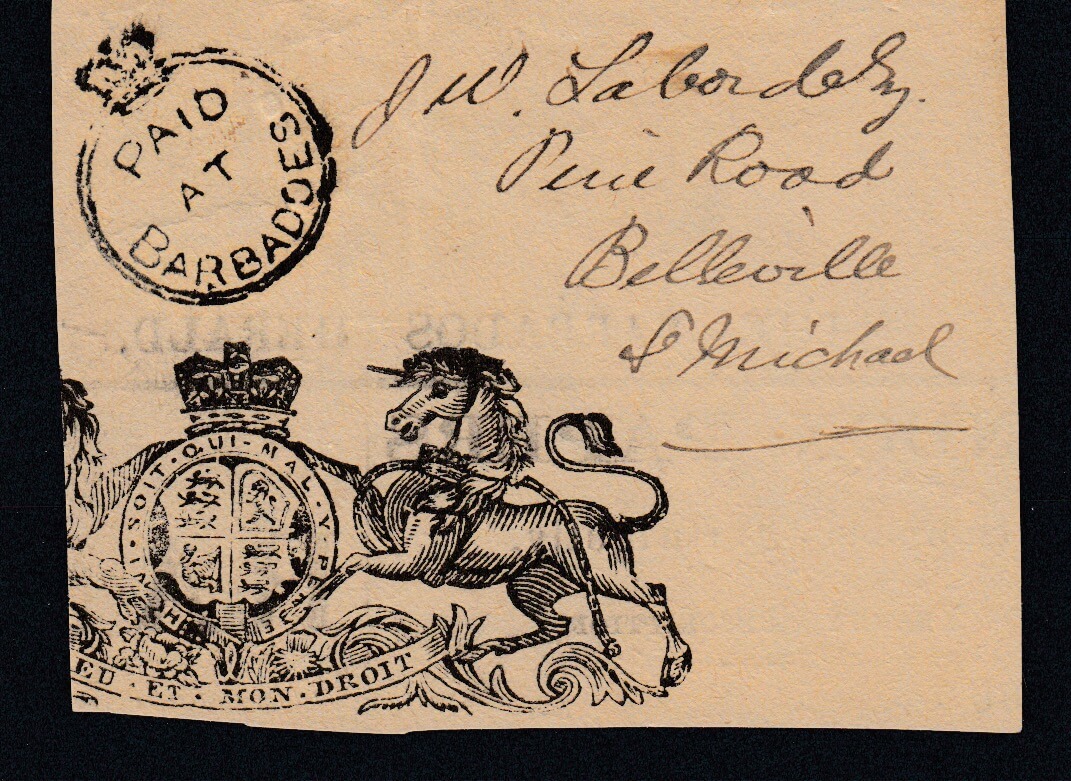 PAID
AT
BARBADOES
J W. Laborde Esq.
Pine Road
Belleville
St Michael
· SOIT · QUI · MAL · Y · P
EU · ET · MON · DROIT